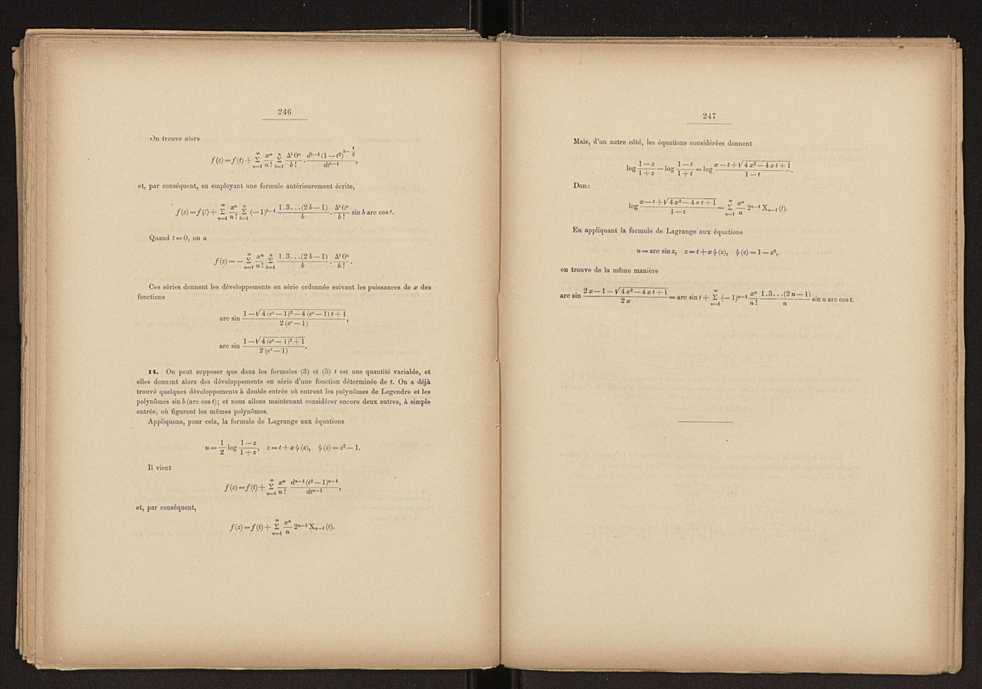 246
On trouve alors
f(t) = f(t) + Σ_{n=1}^{∞} x^n/n! Σ_{b=1}^{n} Δ^b 0^n/b! · d^{b−1}(1−t²)^{b−1/2}/dt^{b−1},
et, par conséquent, en employant une formule antérieurement écrite,
f(z) = f(t) + Σ_{n=1}^{∞} x^n/n! Σ_{b=1}^{n} (−1)^{b−1} 1.3...(2b−1)/b · Δ^b 0^n/b! sin b arc cos t.
Quand t = 0, on a
f(z) = − Σ_{n=1}^{∞} x^n/n! Σ_{b=1}^{n} 1.3...(2b−1)/b · Δ^b 0^n/b! .
Ces séries donnent les développements en série ordonnée suivant les puissances de x des
fonctions
arc sin (1 − √(4(e^x−1)² − 4(e^x−1)t + 1))/(2(e^x−1)),
arc sin (1 − √(4(e^x−1)² + 1))/(2(e^x−1)).
14. On peut supposer que dans les formules (3) et (5) t est une quantité variable, et
elles donnent alors des développements en série d'une fonction déterminée de t. On a déjà
trouvé quelques développements à double entrée où entrent les polynômes de Legendre et les
polynômes sin b (arc cos t); et nous allons maintenant considérer encore deux autres, à simple
entrée, où figurent les mêmes polynômes.
Appliquons, pour cela, la formule de Lagrange aux équations
u = 1/2 log (1−z)/(1+z), z = t + x φ(z), φ(z) = z² − 1.
Il vient
f(z) = f(t) + Σ_{n=1}^{∞} x^n/n! d^{n−1}(t²−1)^{n−1}/dt^{n−1},
et, par conséquent,
f(z) = f(t) + Σ_{n=1}^{∞} x^n/n 2^{n−1} X_{n−1}(t).
247
Mais, d'un autre côté, les équations considérées donnent
log (1−z)/(1+z) − log (1−t)/(1+t) = log (x − t + √(4x² − 4xt + 1))/(1−t).
Donc
log (x − t + √(4x² − 4xt + 1))/(1−t) = Σ_{n=1}^{∞} x^n/n 2^{n−1} X_{n−1}(t).
En appliquant la formule de Lagrange aux équations
u = arc sin z, z = t + x φ(z), φ(z) = 1 − z²,
on trouve de la même manière
arc sin (2x − 1 − √(4x² − 4xt + 1))/(2x) = arc sin t + Σ_{n=1}^{∞} (−1)^{n−1} x^n/n! 1.3...(2n−1)/n sin n arc cos t.